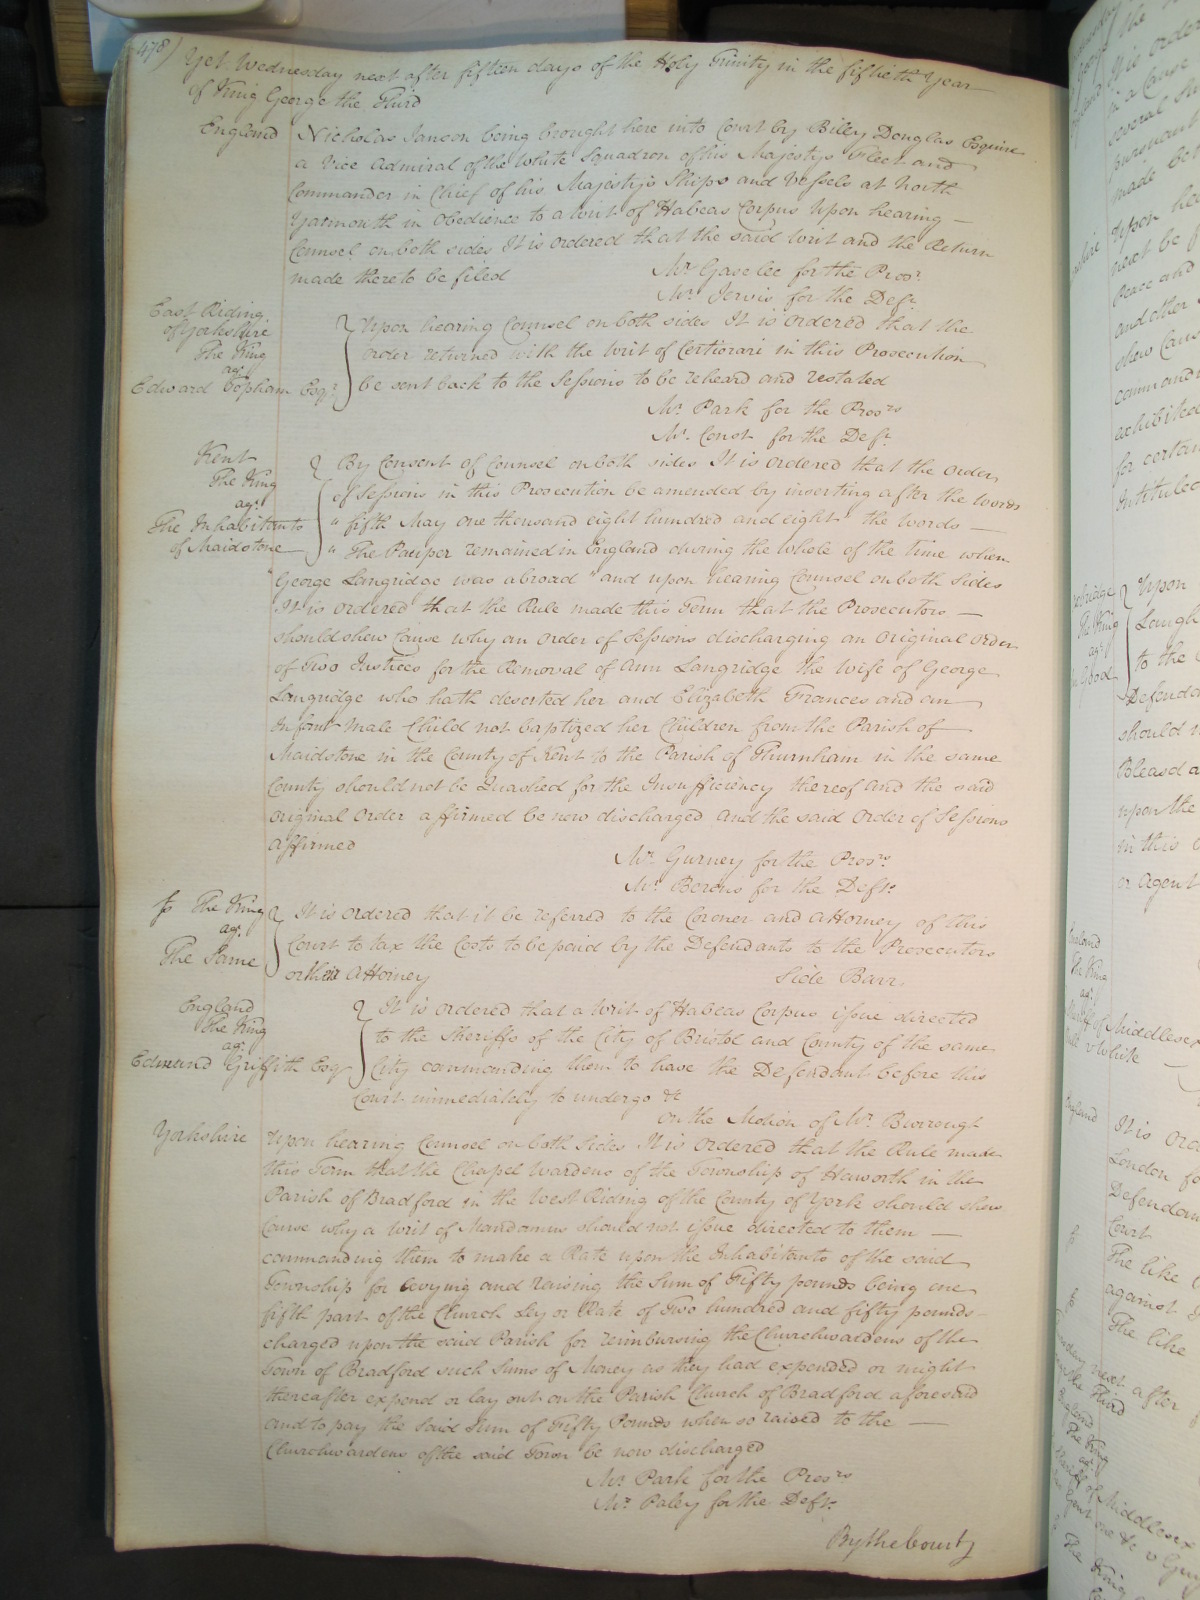 478)
Yet Wednesday next after fifteen days of the Holy Trinity in the fiftieth Year
of King George the Third
England
Nicholas Janson being brought here into Court by Billey Douglas Esquire
a Vice Admiral of the White Squadron of his Majestys Fleet and
Commander in Chief of his Majestys Ships and Vessels at North
Yarmouth in Obedience to a Writ of Habeas Corpus Upon hearing
Counsel on both sides It is ordered that the said Writ and the Return
made thereto be filed
Mr. Gaselee for the Prosr.
Mr. Jervis for the Deft.
East Riding
of Yorkshire
The King
agt.
Edward Topham Esqr.
Upon hearing Counsel on both sides It is ordered that the
order returned with the Writ of Certiorari in this Prosecution
be sent back to the Sessions to be reheard and restated
Mr. Park for the Prosrs
Mr. Const for the Deft.
Kent
The King
agt.
The Inhabitants
of Maidstone
By Consent of Counsel on both sides It is ordered that the order
of Sessions in this Prosecution be amended by inserting after the words
" fifth May one thousand eight hundred and eight" the words
" The Pauper remained in England during the whole of the time when
George Langridge was abroad" and upon hearing Counsel on both sides
It is ordered that the Rule made this Term that the Prosecutors
should shew Cause why an order of Sessions discharging an Original order
of Two Justices for the Removal of Ann Langridge the Wife of George
Langridge who hath deserted her and Elizabeth Frances and an
Infant Male Child not baptized her Children from the Parish of
Maidstone in the County of Kent to the Parish of Thurnham in the same
County should not be Quashed for the Insufficiency thereof and the said
Original Order affirmed be now discharged and the said Order of Sessions
affirmed
Mr. Gurney for the Prosrs
Mr. Berens for the Defts.
The King
agt.
The Same
It is ordered that it be referred to the Coroner and Attorney of this
Court to tax the Costs to be paid by the Defendants to the Prosecutors
or their Attorney
Side Barr.
England
The King
agt.
Edmund Griffith Esqr.
It is ordered that a Writ of Habeas Corpus issue directed
to the Sheriffs of the City of Bristol and County of the same
City commanding them to have the Defendant before this
Court immediately to undergo &c
On the Motion of Mr. Burrough
Yorkshire
Upon hearing Counsel on both Sides It is Ordered that the Rule made
this Term that the Chapel Wardens of the Township of Haworth in the
Parish of Bradford in the West Riding of the County of York should shew
Cause why a Writ of Mandamus should not issue directed to them
commanding them to make a Rate upon the Inhabitants of the said
Township for levying and raising the Sum of Fifty pounds being one
fifth part of the Church Ley or Rate of Two hundred and fifty pounds
charged upon the said Parish for reimbursing the Churchwardens of the
Town of Bradford such Sums of Money as they had expended or might
thereafter expend or lay out on the Parish Church of Bradford aforesaid
and to pay the said Sum of Fifty Pounds when so raised to the
Churchwardens of the said Town be now discharged
Mr. Park for the Prosrs
Mr. Paley for the Defts.
By the Court